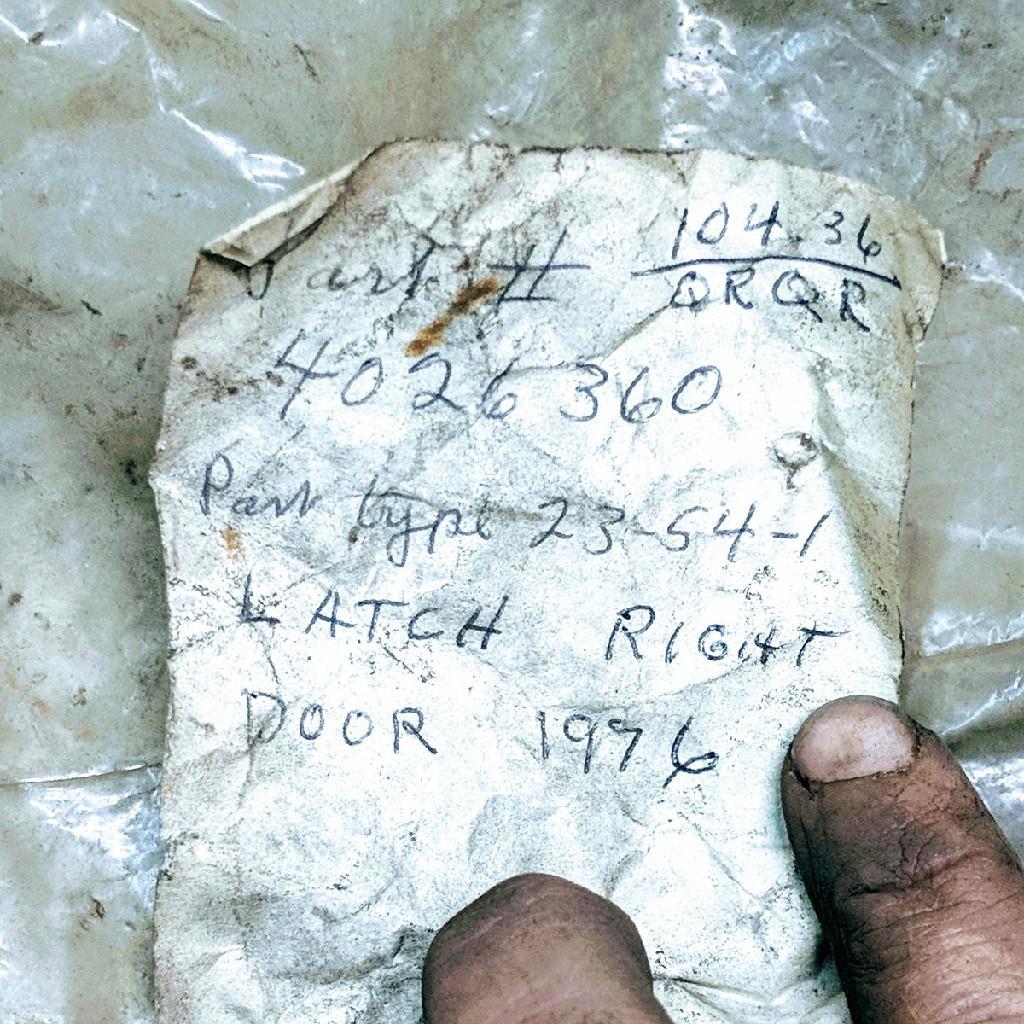 Part # 104.36
QRQR
4026360
Part type 23-54-1
LATCH RIGHT
DOOR 1976